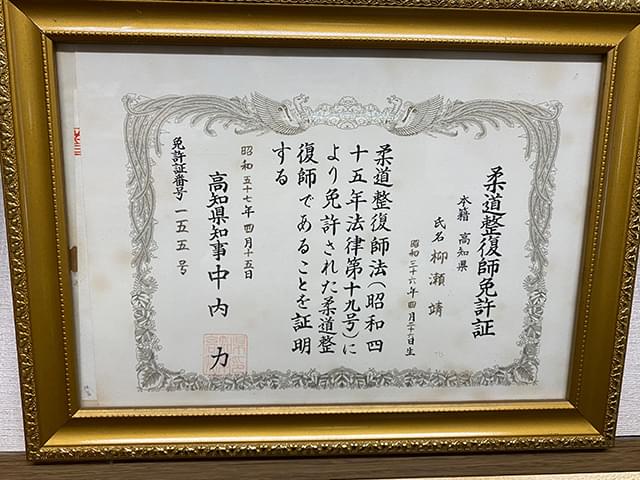 柔道整復師免許証
本籍 高知県
氏名 柳瀬 靖
昭和三十六年四月二十二日生
柔道整復師法(昭和四
十五年法律第十九号)に
より免許された柔道整
復師であることを証明
する
昭和五十七年四月十五日
高知県知事 中内 力
免許証番号 一五五号